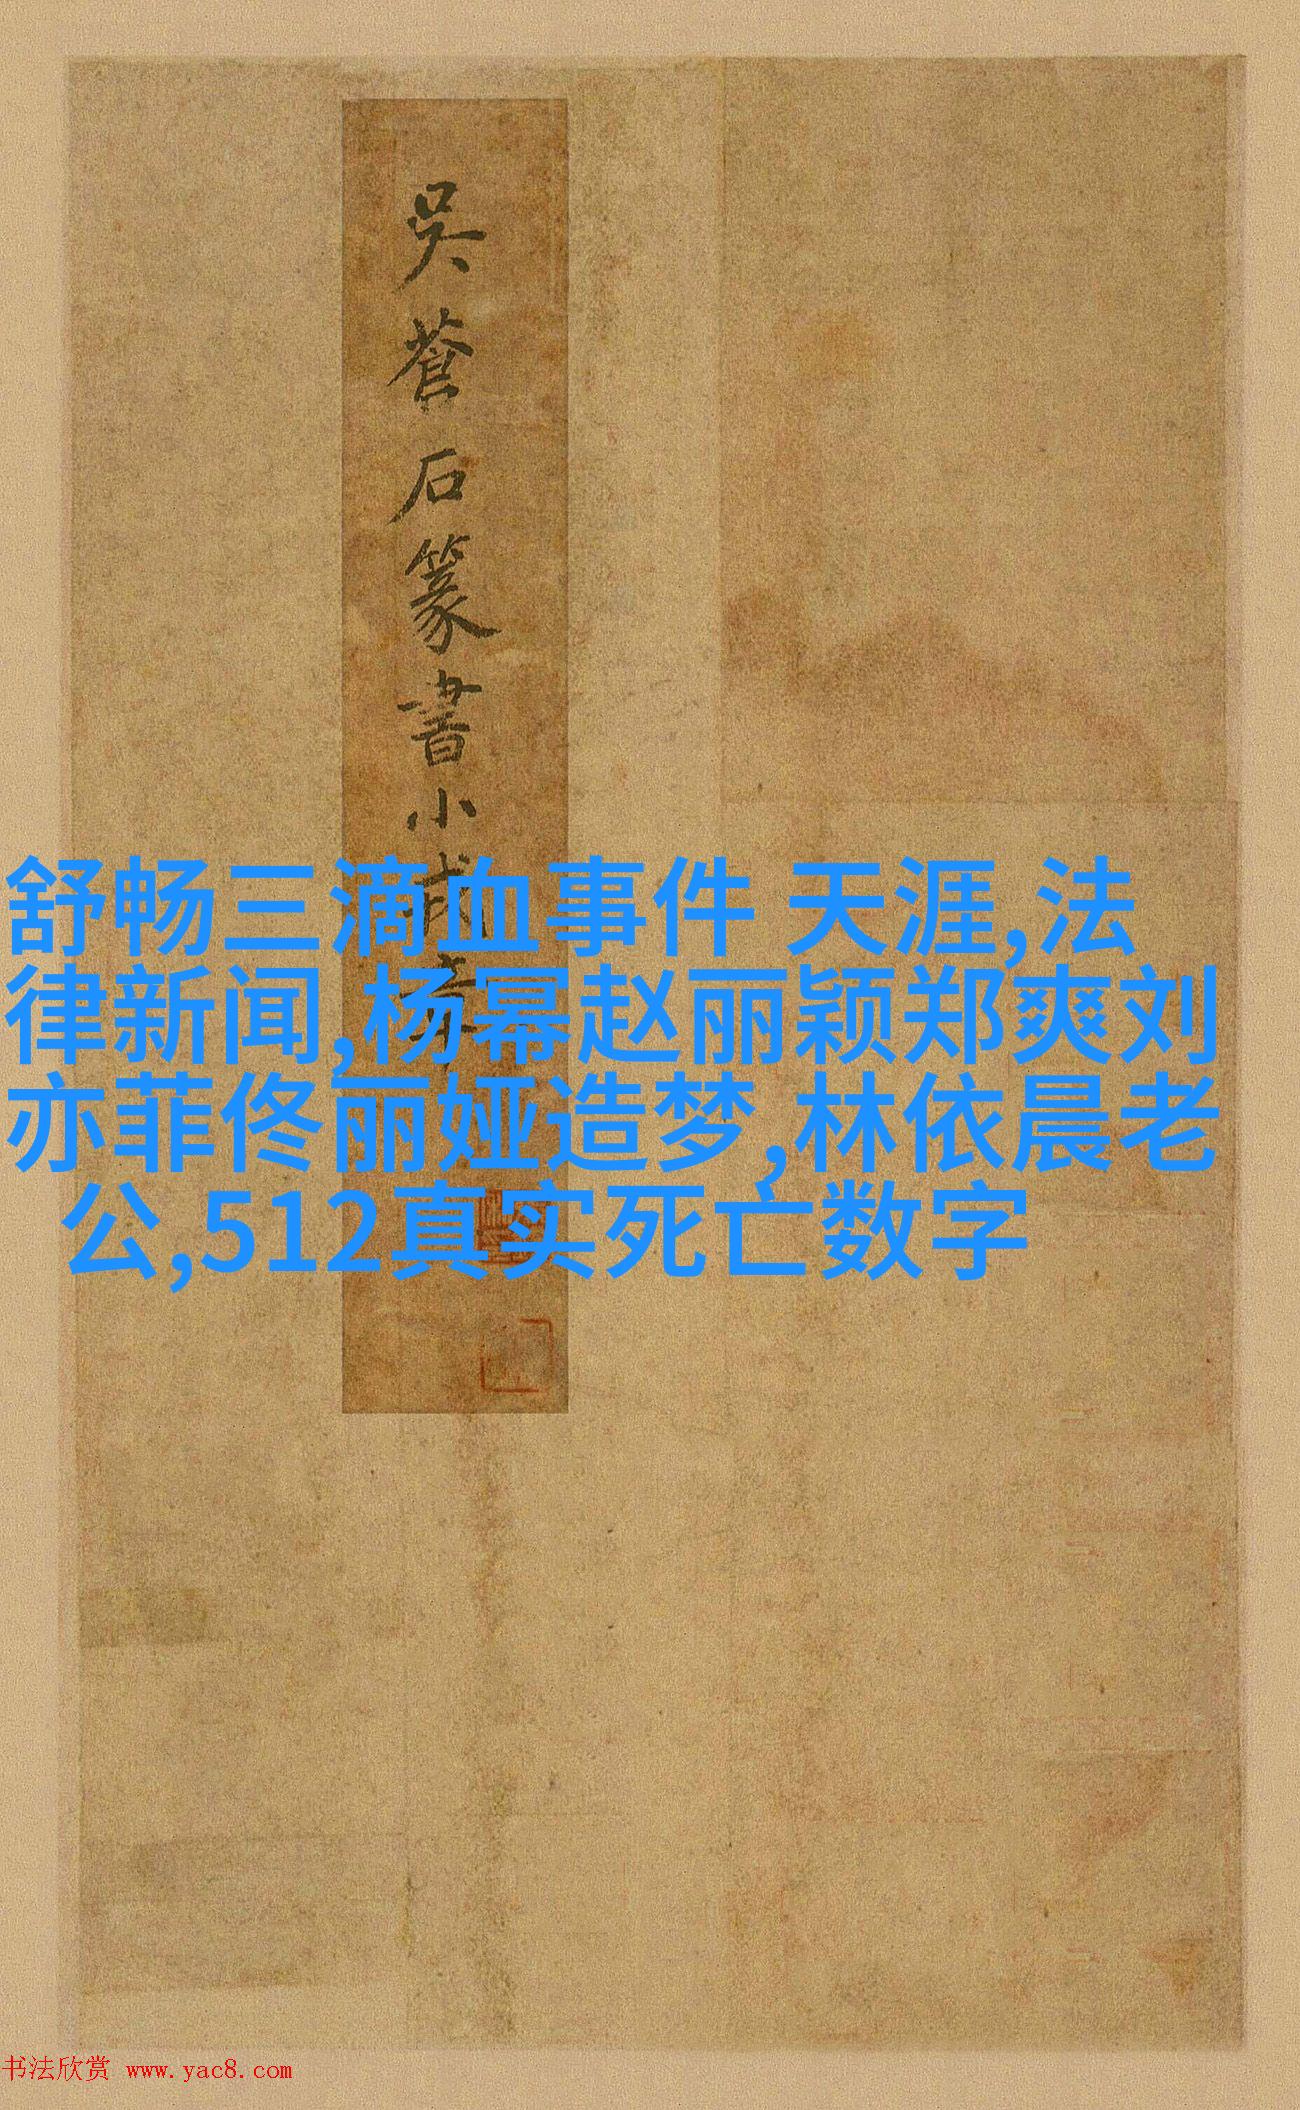 吳蒼石篆書小戎章
舒畅三滴血事件 天涯,法
律新闻,杨幂赵丽颖郑爽刘
亦菲佟丽娅造梦,林依晨老
公,512真实死亡数字
书法欣赏 www.yac8.com